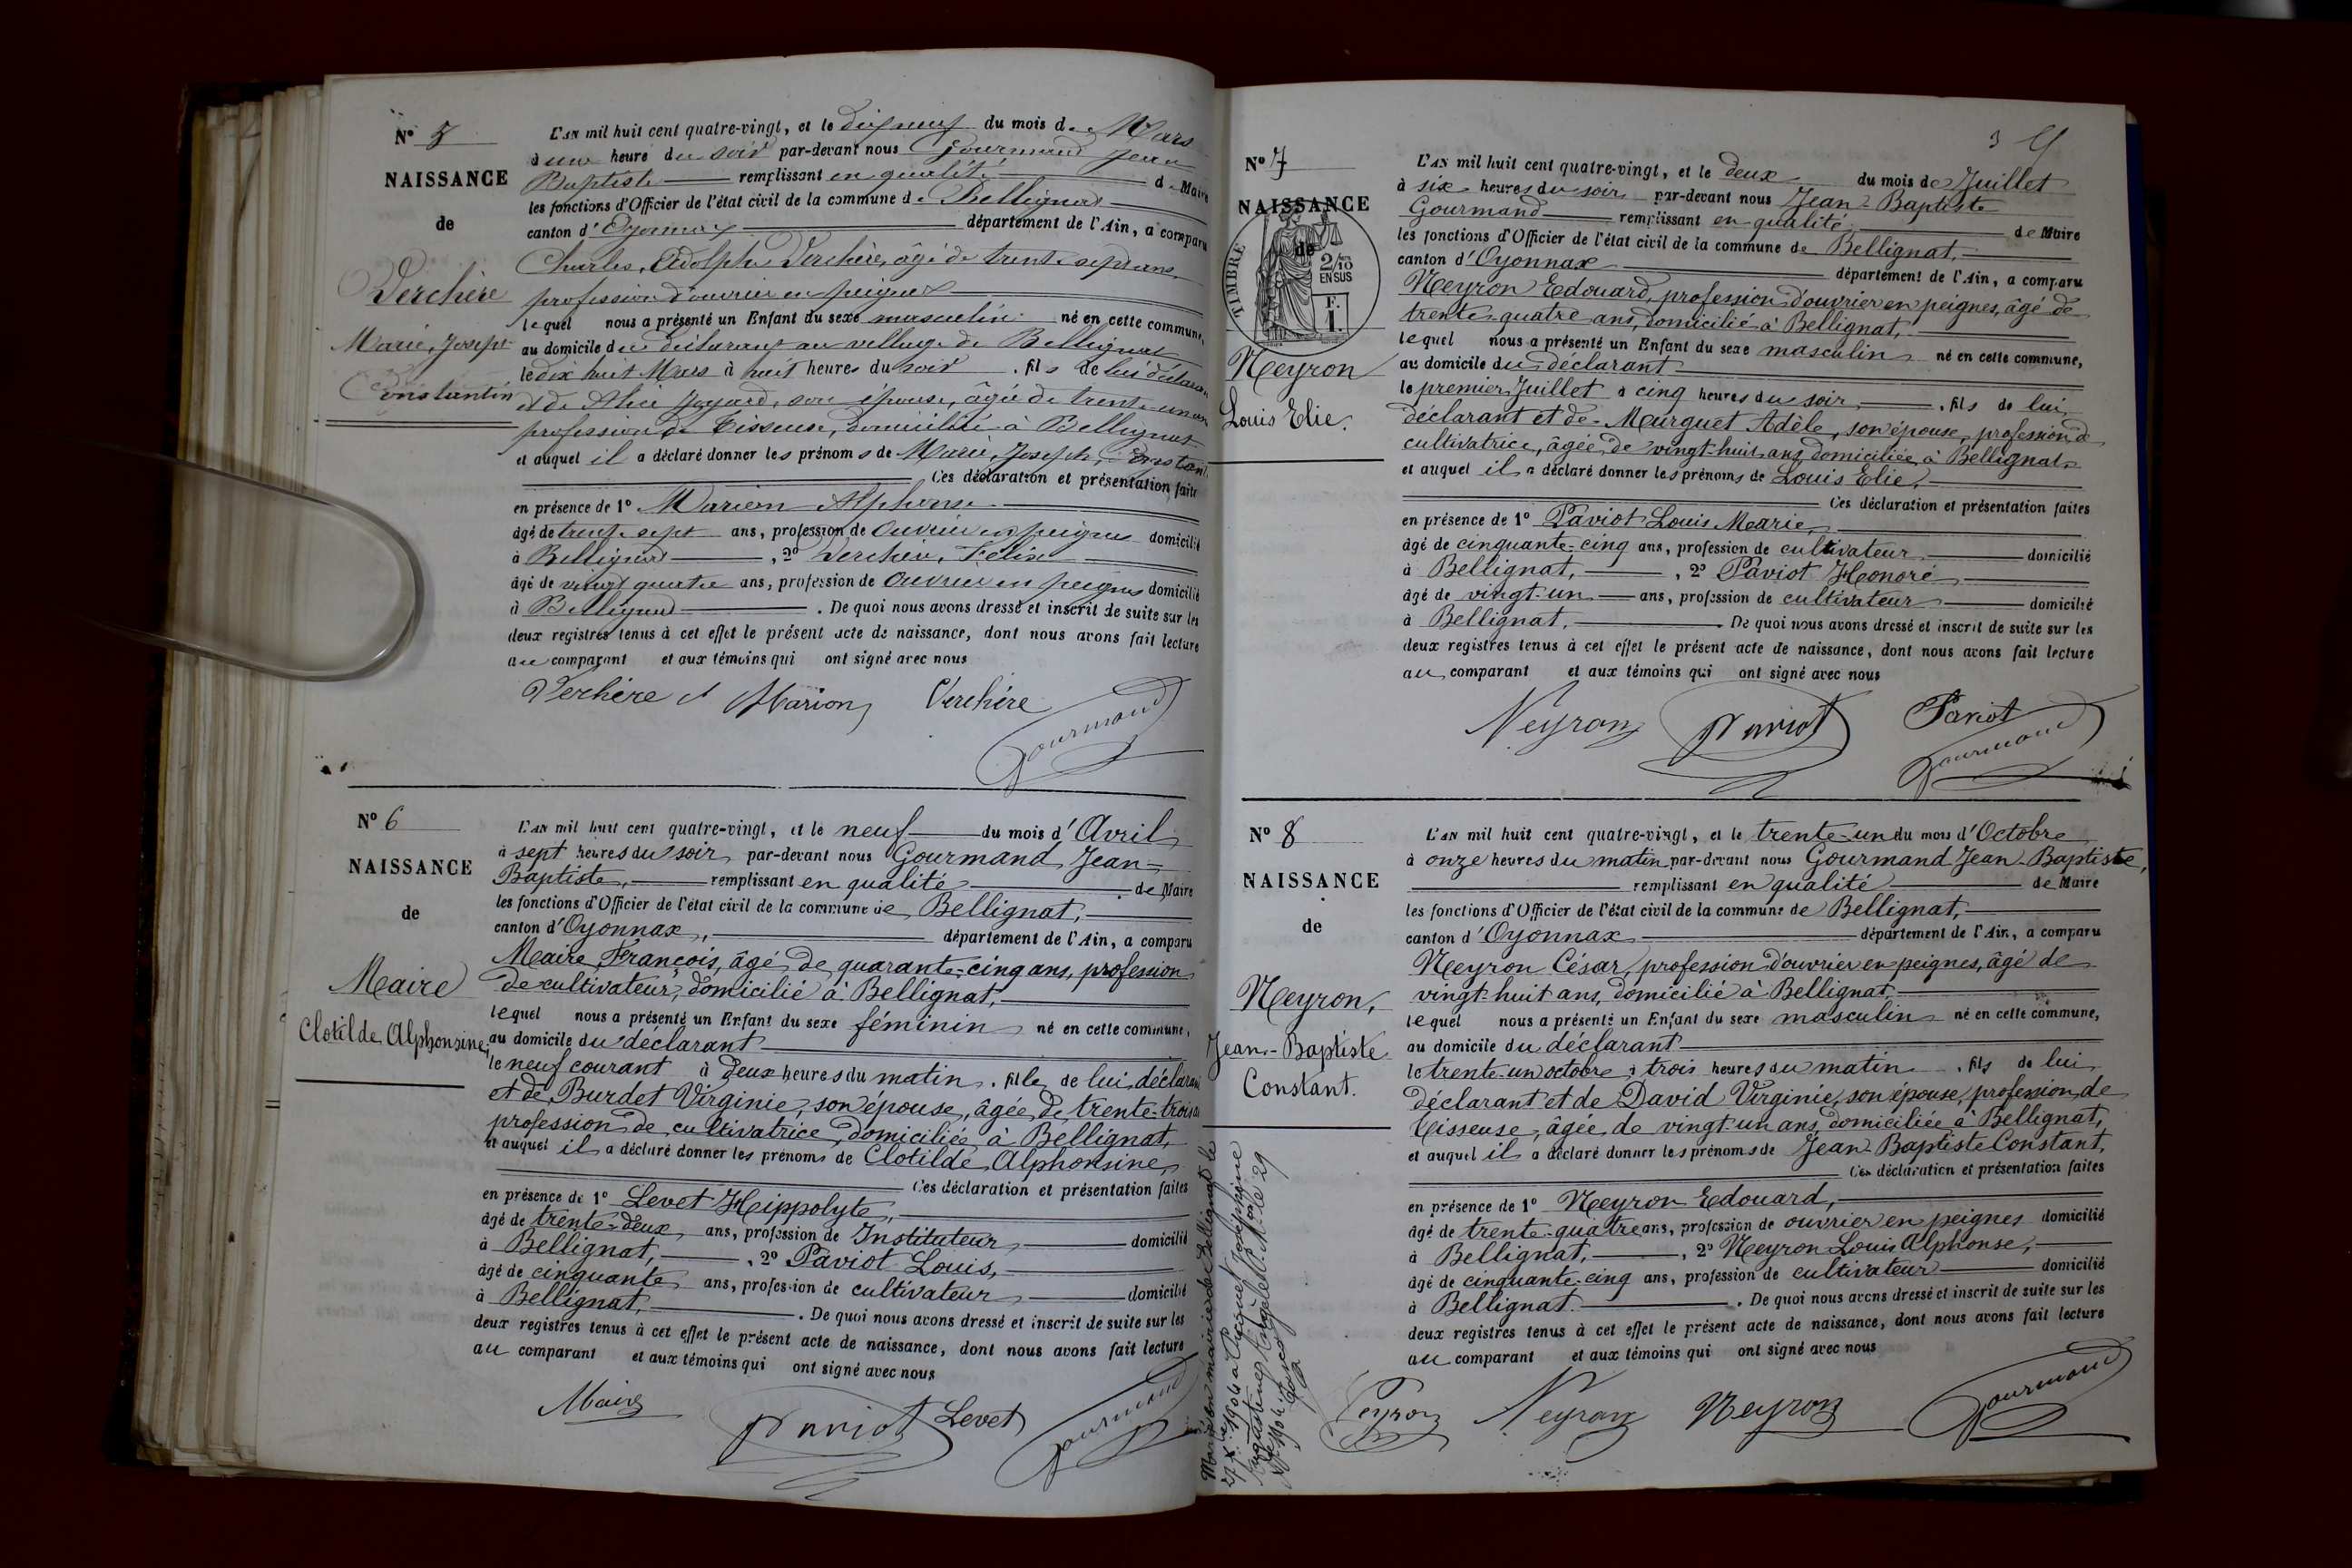 N° 5
NAISSANCE
de
Verchère
Marie, Joseph
Constantin
L'AN mil huit cent quatre-vingt, et le dix neuf du mois de Mars
à une heure du soir par-devant nous Gourmand Jean
Baptiste remplissant en qualité de Maire
les fonctions d'Officier de l'état civil de la commune de Bellignat
canton d'Oyonnax département de l'Ain, a comparu
Charles, Adolphe Verchère, âgé de trente sept ans,
profession d'ouvrier en peignes
lequel nous a présenté un Enfant du sexe masculin né en cette commune,
au domicile du déclarant au village de Bellignat
le dix huit Mars à huit heures du soir . fils de lui déclarant
et de Alice Joyard, son épouse, âgée de trente un ans
profession de Tisseuse, domiciliée à Bellignat
et auquel il a déclaré donner les prénoms de Marie, Joseph, Constantin
Ces déclaration et présentation faites
en présence de 1° Marion Alphonse
âgé de trente sept ans, profession de Ouvrier en peignes domicilié
à Bellignat , 2° Verchère, Félix
âgé de vingt quatre ans, profession de Ouvrier en peignes domicilié
à Bellignat . De quoi nous avons dressé et inscrit de suite sur les
deux registres tenus à cet effet le présent acte de naissance, dont nous avons fait lecture
au comparant et aux témoins qui ont signé avec nous
Verhère A Marion Verchère
Gourmand
N° 6
NAISSANCE
de
Maire
Clotilde Alphonsine
L'AN mil huit cent quatre-vingt, et le neuf du mois d'Avril
à sept heures du soir par-devant nous Gourmand Jean-
Baptiste, remplissant en qualité de Maire
les fonctions d'Officier de l'état civil de la commune de Bellignat,
canton d'Oyonnax, département de l'Ain, a comparu
Maire François, âgé de quarante-cinq ans, profession
de cultivateur, domicilié à Bellignat,
lequel nous a présenté un Enfant du sexe féminin né en cette commune,
au domicile du déclarant
le neuf courant à deux heures du matin . fille de lui déclarant
et de Burdet Virginie, son épouse, âgée de trente-trois ans
profession de cultivatrice, domiciliée à Bellignat,
et auquel il a déclaré donner les prénoms de Clotilde Alphonsine
Ces déclaration et présentation faites
en présence de 1° Levet Hippolyte,
âgé de trente-deux ans, profession de Instituteur domicilié
à Bellignat, , 2° Paviot Louis,
âgé de cinquante ans, profession de cultivateur domicilié
à Bellignat, . De quoi nous avons dressé et inscrit de suite sur les
deux registres tenus à cet effet le présent acte de naissance, dont nous avons fait lecture
au comparant et aux témoins qui ont signé avec nous
Maire Paviot Levet Gourmand
3
N° 7
NAISSANCE
de
TIMBRE
2/10
EN SUS
F.
1.
Neyron
Louis Elie.
L'AN mil huit cent quatre-vingt, et le deux du mois de Juillet
à six heures du soir par-devant nous Jean-Baptiste
Gourmand remplissant en qualité de Maire
les fonctions d'Officier de l'état civil de la commune de Bellignat,
canton d'Oyonnax département de l'Ain, a comparu
Neyron Edouard, profession d'ouvrier en peignes, âgé de
trente-quatre ans, domicilié à Bellignat,
lequel nous a présenté un Enfant du sexe masculin né en cette commune,
au domicile du déclarant
le premier Juillet à cinq heures du soir . fils de lui
déclarant et de Murguet Adèle, son épouse, profession de
cultivatrice, âgée de vingt-huit ans domiciliée à Bellignat
et auquel il a déclaré donner les prénoms de Louis Elie,
Ces déclaration et présentation faites
en présence de 1° Paviot Louis Marie,
âgé de cinquante-cinq ans, profession de cultivateur domicilié
à Bellignat, , 2° Paviot Honoré
âgé de vingt-un ans, profession de cultivateur domicilié
à Bellignat, . De quoi nous avons dressé et inscrit de suite sur les
deux registres tenus à cet effet le présent acte de naissance, dont nous avons fait lecture
au comparant et aux témoins qui ont signé avec nous
Neyron Paviot Paviot
Gourmand
N° 8
NAISSANCE
de
Neyron,
Jean-Baptiste
Constant.
Marié en mairie de Bellignat le
1904 à Picquet Joséphine
Augustine
L'AN mil huit cent quatre-vingt, et le trente-un du mois d'Octobre
à onze heures du matin par-devant nous Gourmand Jean-Baptiste,
remplissant en qualité de Maire
les fonctions d'Officier de l'état civil de la commune de Bellignat,
canton d'Oyonnax département de l'Ain, a comparu
Neyron César, profession d'ouvrier en peignes, âgé de
vingt-huit ans, domicilié à Bellignat,
lequel nous a présenté un Enfant du sexe masculin né en cette commune,
au domicile du déclarant
le trente-un octobre à trois heures du matin . fils de lui
déclarant et de David Virginie, son épouse, profession de
Tisseuse, âgée de vingt-un ans, domiciliée à Bellignat,
et auquel il a déclaré donner les prénoms de Jean-Baptiste Constant,
Ces déclaration et présentation faites
en présence de 1° Neyron Edouard,
âgé de trente-quatre ans, profession de ouvrier en peignes domicilié
à Bellignat, , 2° Neyron Louis Alphonse,
âgé de cinquante-cinq ans, profession de cultivateur domicilié
à Bellignat. . De quoi nous avons dressé et inscrit de suite sur les
deux registres tenus à cet effet le présent acte de naissance, dont nous avons fait lecture
au comparant et aux témoins qui ont signé avec nous
Neyron Neyron Neyron Gourmand